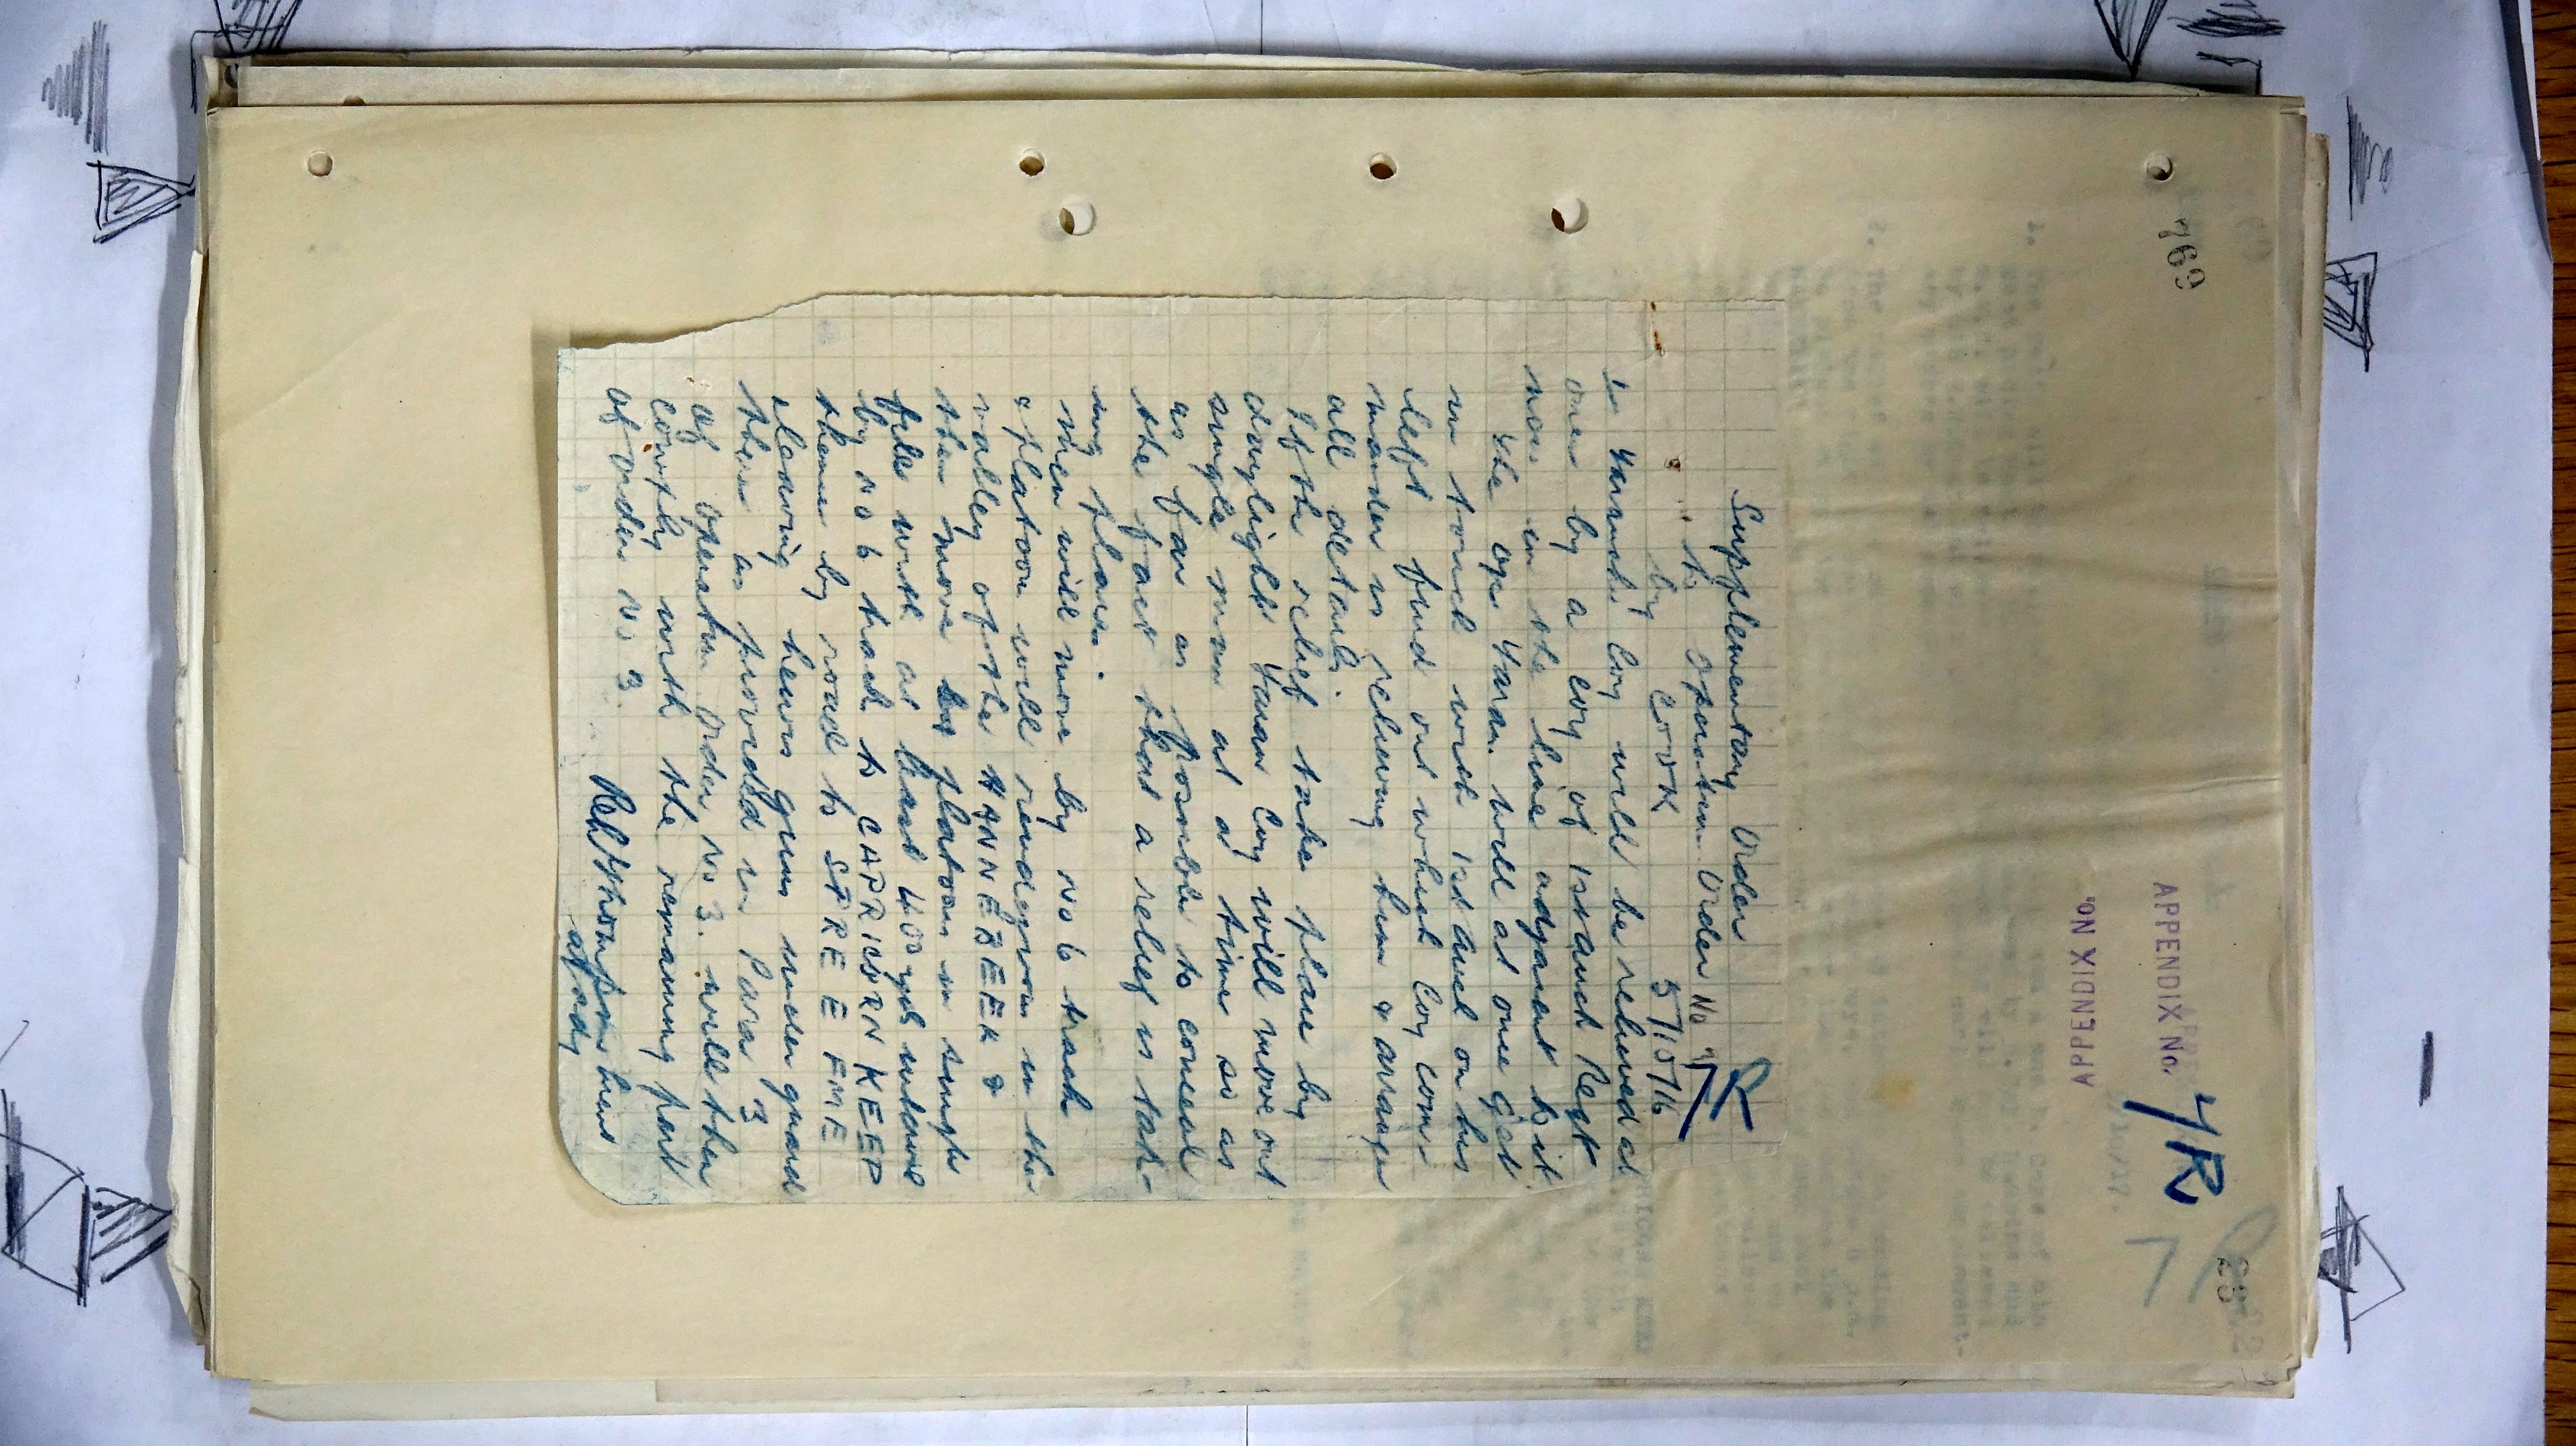 769
APPENDIX No. YR
APPENDIX No.
7
23
Supplementary Order
YR
to Operation Order No 3
by COOK 5/10/16
Yarut's Coy will be relieved at
once by a coy of 1st Auck Regt
now in the line adjacent to it
The ops Yaran. will at once get
in touch with 1st Auck on his
left find out which Coy com-
mander is relieving him & arrange
all details.
If the relief takes place by
daylight Yaran Coy will move out
single man at a time so as
as far as possible to conceal
the fact that a relief is tak-
ing place.
Men will move by No 6 track
& platoon will rendezvous in the
valley of the HANNEBEEK &
then move by platoon in single
file with at least 400 yds interval
by No 6 track to CAPRICORN KEEP
thence by road to SPREE FME
leaving lewis guns under guard
there as provided in Para 3
of Operation Order No 3. will then
comply with the remaining part
of order No 3.